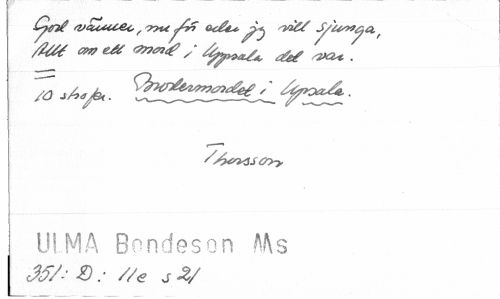 God vänner, nu för eder jg vill sjunga,
Allt om ett mord i Uppsala det var.
10 strofer. Brodermordet i Upsala.
Thorsson
ULMA Bondeson Ms
351: D: 11e s 21